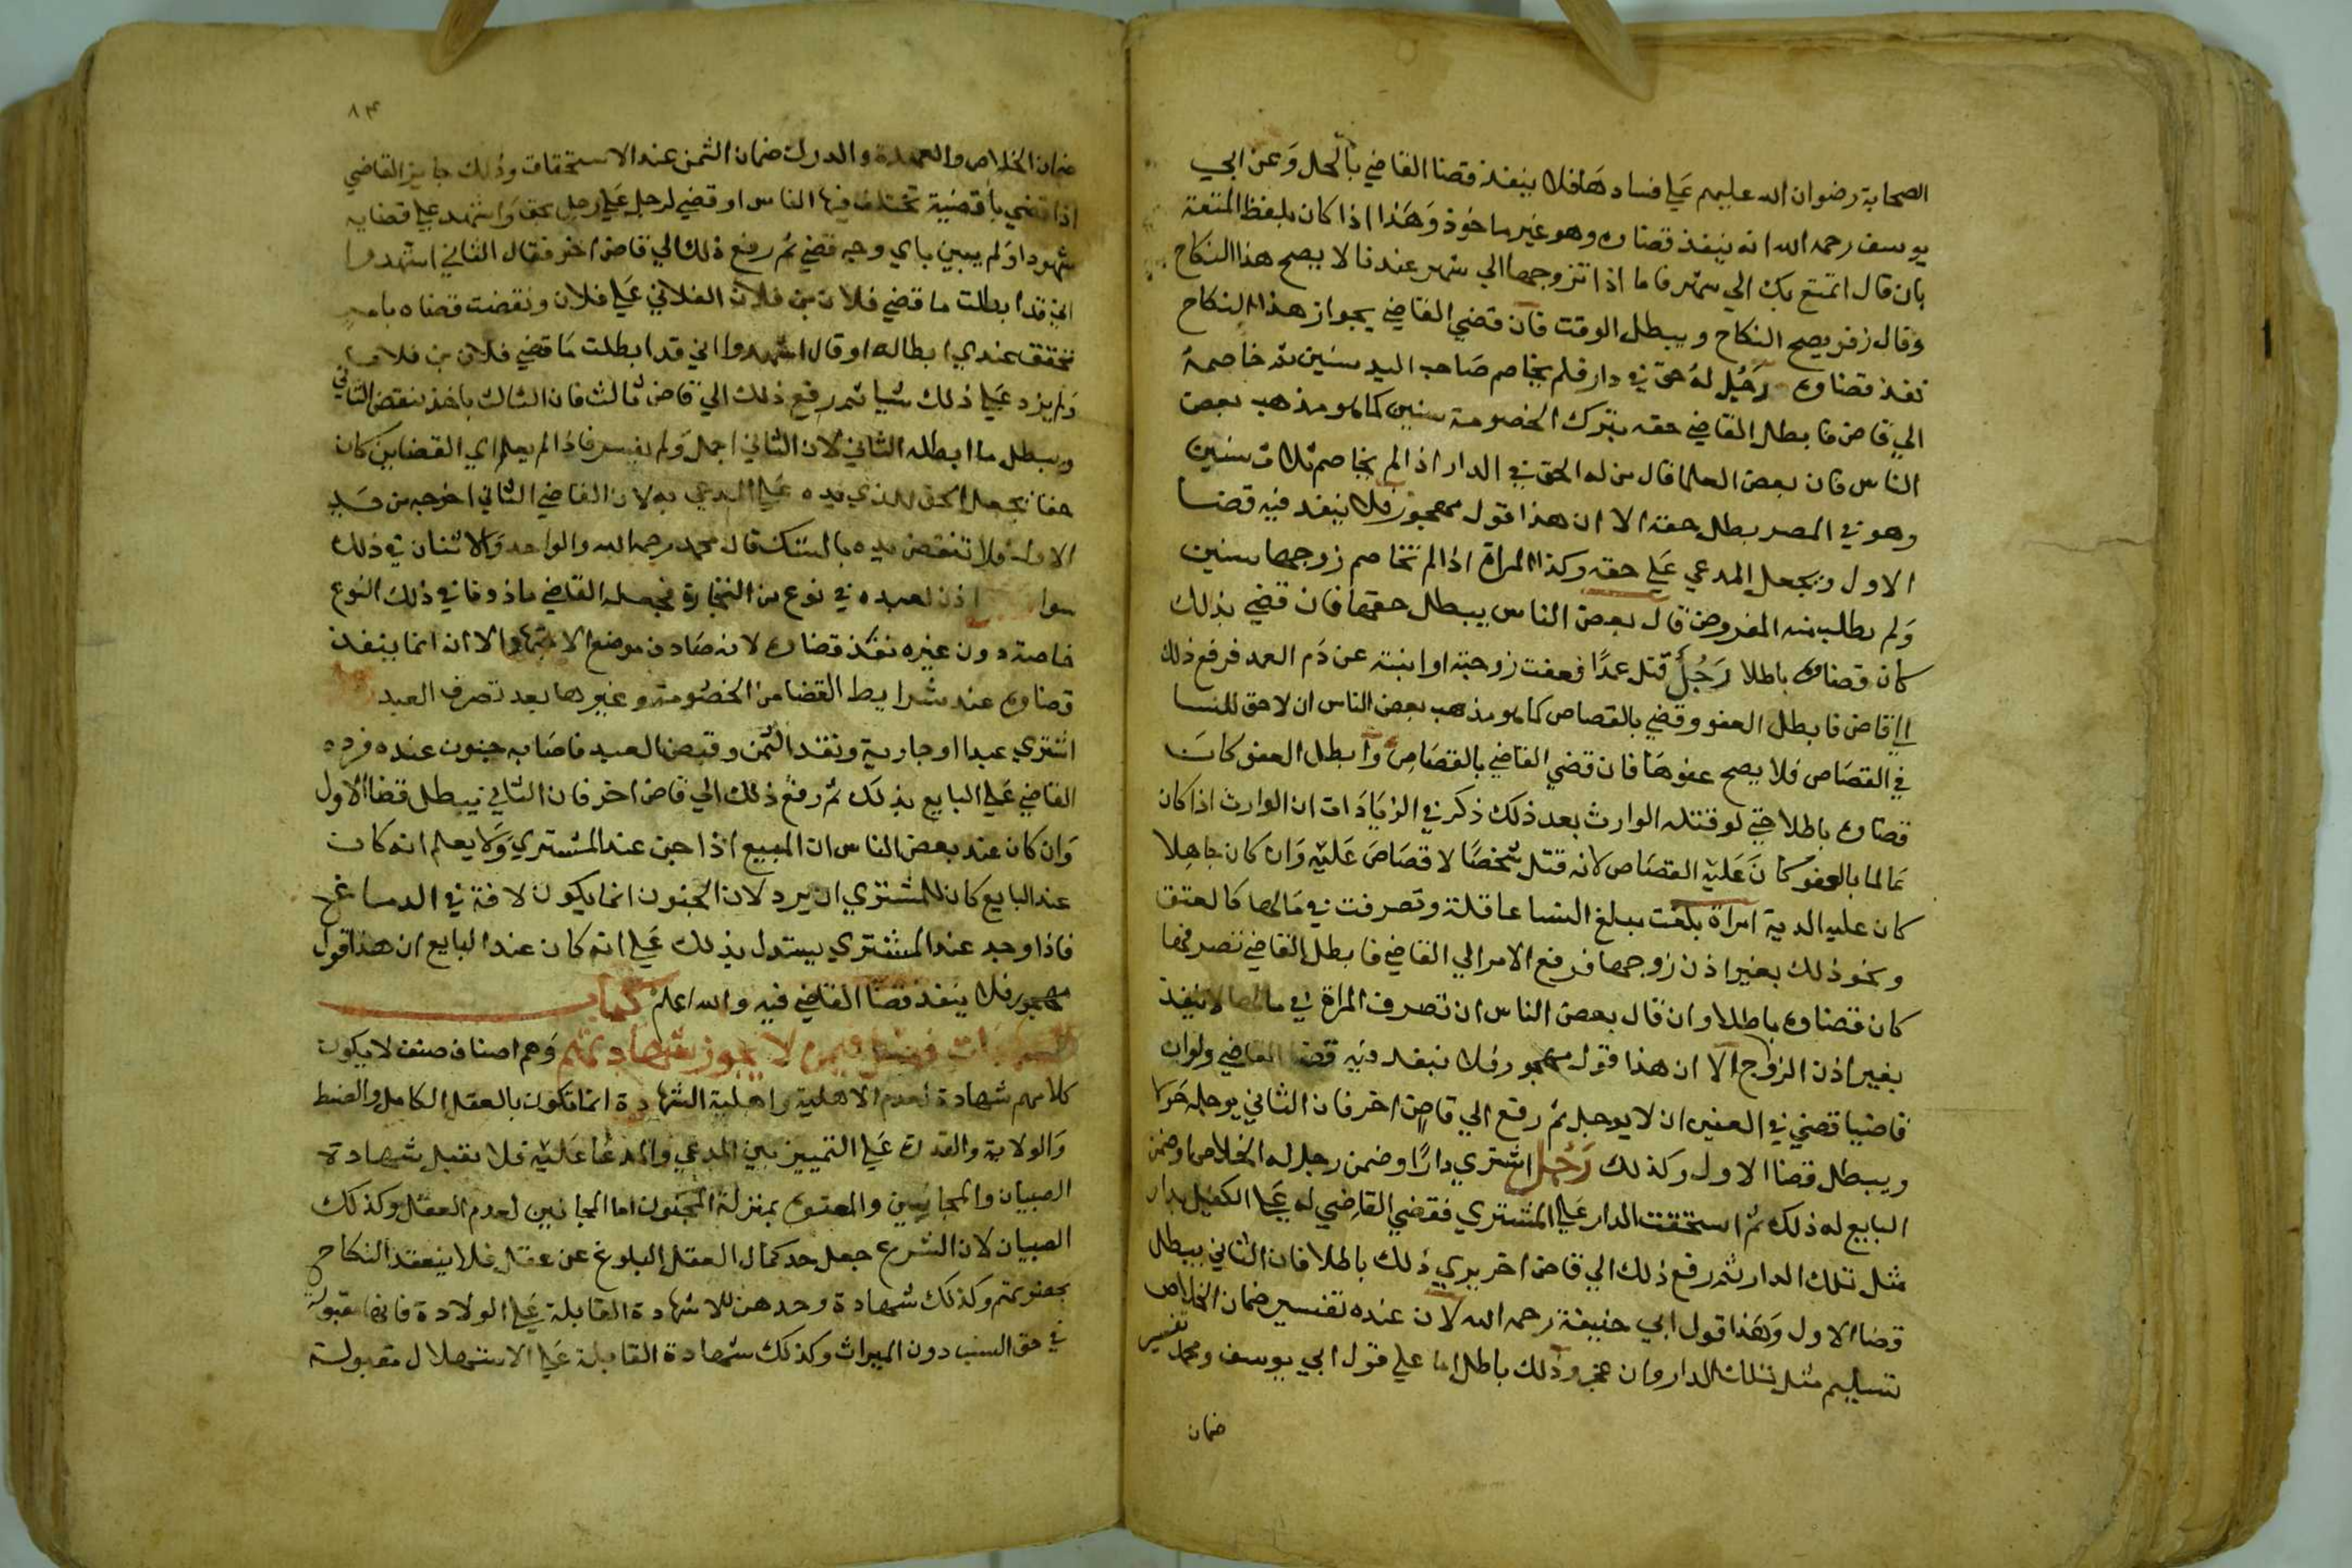 الصحابة رضوان الله عليهم على فسادها فلا ينفذ قضا القاضي بالحل وعن ابي
يوسف رحمه الله انه ينفذ قضاوه وهو غير ماخوذ وهذا اذا كان بلفظ المتعة
بان قال اتمتع بك الي شهر فاما اذا تزوجها الي شهر عندنا لا يصح هذا النكاح
وقال زفر يصح النكاح ويبطل الوقت فان قضي القاضي بجواز هذا النكاح
نفذ قضاوه رجل له حق في دار فلم يخاصم صاحب اليد سنين ثم خاصمه
الي قاض فابطل القاضي حقه بترك الخصومة سنين كما هو مذهب بعض
الناس فان بعض العلما قال من له الحق في الدار اذا لم يخاصم ثلاث سنين
وهو في المصر بطل حقه الا ان هذا قول مهجور فلا ينفذ فيه قضا
الاول ويجعل المدعي على حقه وكذا المراة اذا لم تخاصم زوجها سنين
ولم يطلب منه المفروض قال بعض الناس يبطل حقها فان قضي بذلك
كان قضاوه باطلا رجل قتل عمدا فعفت زوجته او ابنته عن دم العمد فرفع ذلك
الي قاض فابطل العفو وقضي بالقصاص كما هو مذهب بعض الناس ان لا حق للنسا
في القصاص فلا يصح عفوها فان قضي القاضي بالقصاص وابطل العفو كان
قضاوه باطلا حتي لو قتله الوارث بعد ذلك ذكر في الزيادات ان الوارث اذا كان
عالما بالعفو كان عليه القصاص لانه قتل شخصا لا قصاص عليه وان كان جاهلا
كان عليه الدية امراة بلغت مبلغ النسا عاقلة وتصرفت في مالها كالعتق
ونحو ذلك بغير اذن زوجها فرفع الامر الي القاضي فابطل القاضي تصرفها
كان قضاوه باطلا وان قال بعض الناس ان تصرف المراة في مالها لا ينفذ
بغير اذن الزوج الا ان هذا قول مهجور فلا ينفذ فيه قضا القاضي ولو ان
قاضيا قضي في العنين ان لا يوجل ثم رفع الي قاض اخر فان الثاني يوجله حولا
ويبطل قضا الاول وكذلك رجل اشتري دارا وضمن رجل له الخلاص او ضمن
البايع له ذلك ثم استحقت الدار على المشتري فقضي القاضي له على الكفيل بدار
مثل تلك الدار ثم رفع ذلك الي قاض اخر يري ذلك باطلا فان الثاني يبطل
قضا الاول وهذا قول ابي حنيفة رحمه الله لان عنده تفسير ضمان الخلاص
تسليم مثل تلك الدار وان عجز وذلك باطل اما على قول ابي يوسف ومحمد تفسير
ضمان
٨٣
ضمان الخلاص والعهدة والدرك ضمان الثمن عند الاستحقاق وذلك جايز القاضي
اذا قضي باقضية تختلف فيها الناس او قضي لرجل على رجل بحق واشهد على قضايه
شهودا ولم يبين باي وجه قضي ثم رفع ذلك الي قاض اخر فقال الثاني اشهدوا
اني قد ابطلت ما قضي فلان بن فلان الفلاني على فلان ونقضت قضاه بامر
تحقق عندي ابطاله او قال اشهدوا اني قد ابطلت ما قضي فلان بن فلان
ولم يزد على ذلك شيا ثم رفع ذلك الي قاض ثالث فان الثالث ياخذ بنقض الثاني
ويبطل ما ابطله الثاني لان الثاني اجمل ولم يفسر فاذا لم يعلم اي القضاين كان
حقا يجعل الحق للذي يده على المدعي به لان القاضي الثاني اخرجه من يد
الاول فلا تنقض يده بالشك قال محمد رحمه الله والواحد والاثنان في ذلك
سوا اذن لعبده في نوع من التجارة فجعله القاضي ماذونا في ذلك النوع
خاصة دون غيره نفذ قضاوه لانه صادف موضع الاجتهاد الا ان انما ينفذ
قضاوه عند شرايط القضا من الخصومة وغيرها بعد تصرف العبد
اشتري عبدا او جارية ونقد الثمن وقبض العبد فاصابه جنون عنده فرده
القاضي على البايع بذلك ثم رفع ذلك الي قاض اخر فان الثاني يبطل قضا الاول
وان كان عند بعض الناس ان المبيع اذا جن عند المشتري ولا يعلم انه كان
عند البايع كان للمشتري ان يرد لان الجنون انما يكون لافة في الدماغ
فاذا وجد عند المشتري يستدل بذلك على انه كان عند البايع ان هذا قول
مهجور فلا ينفذ قضا القاضي فيه والله اعلم كتاب
الشهادات فصل فيمن لا يجوز شهادتهم وهم اصناف صنف لا يكون
كلامهم شهادة لعدم الاهلية واهلية الشهادة انما تكون بالعقل الكامل والضبط
والولاية والقدرة على التمييز بين المدعي والمدعا عليه فلا تقبل شهادة
الصبيان والمجانين والمعتوه بمنزلة المجنون اما المجانين لعدم العقل وكذلك
الصبيان لان الشرع جعل حد كمال العقل البلوغ عن عقل فلا ينعقد النكاح
بحضرتهم وكذلك شهادة وحدهن للا شهادة القابلة على الولادة فانها مقبولة
في حق النسب دون الميراث وكذلك شهادة القابلة على الاستهلال مقبولة